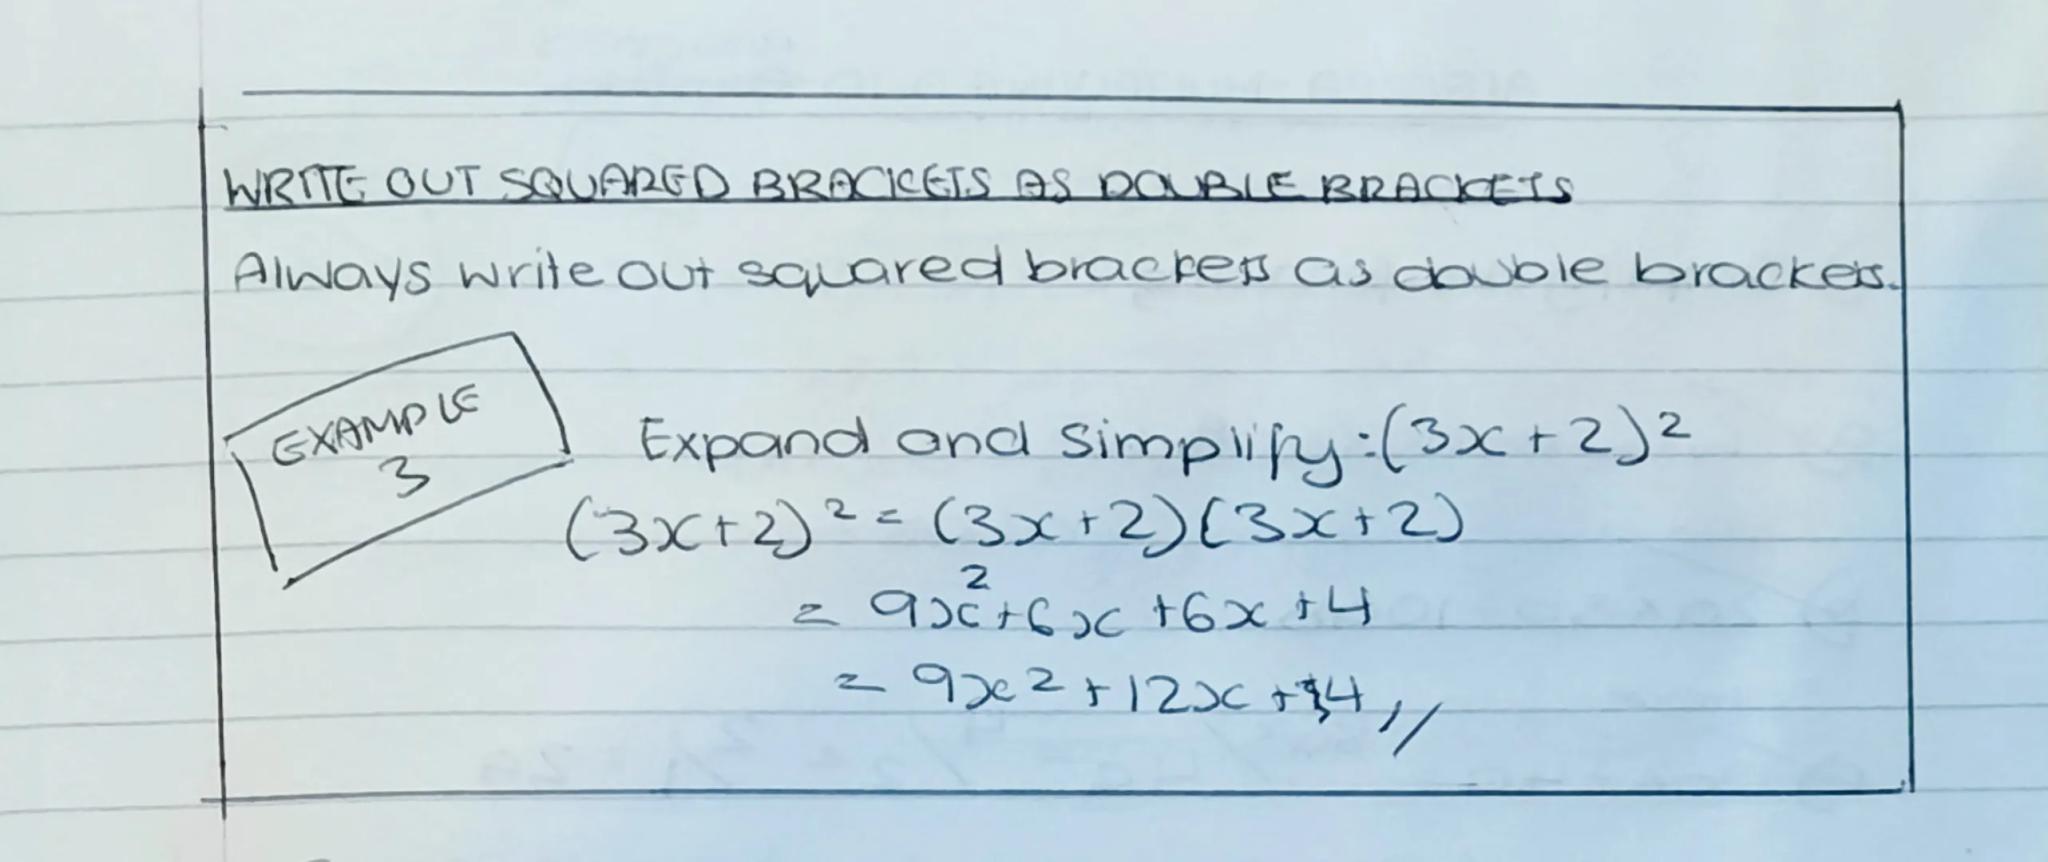 WRITE OUT SQUARED BRACKETS AS DOUBLE BRACKETS
Always write out squared brackets as double brackets.
EXAMPLE
3
Expand and simplify: (3x+2)²
(3x+2)² = (3x+2)(3x+2)
= 9x²+6x+6x+4
= 9x²+12x+4//